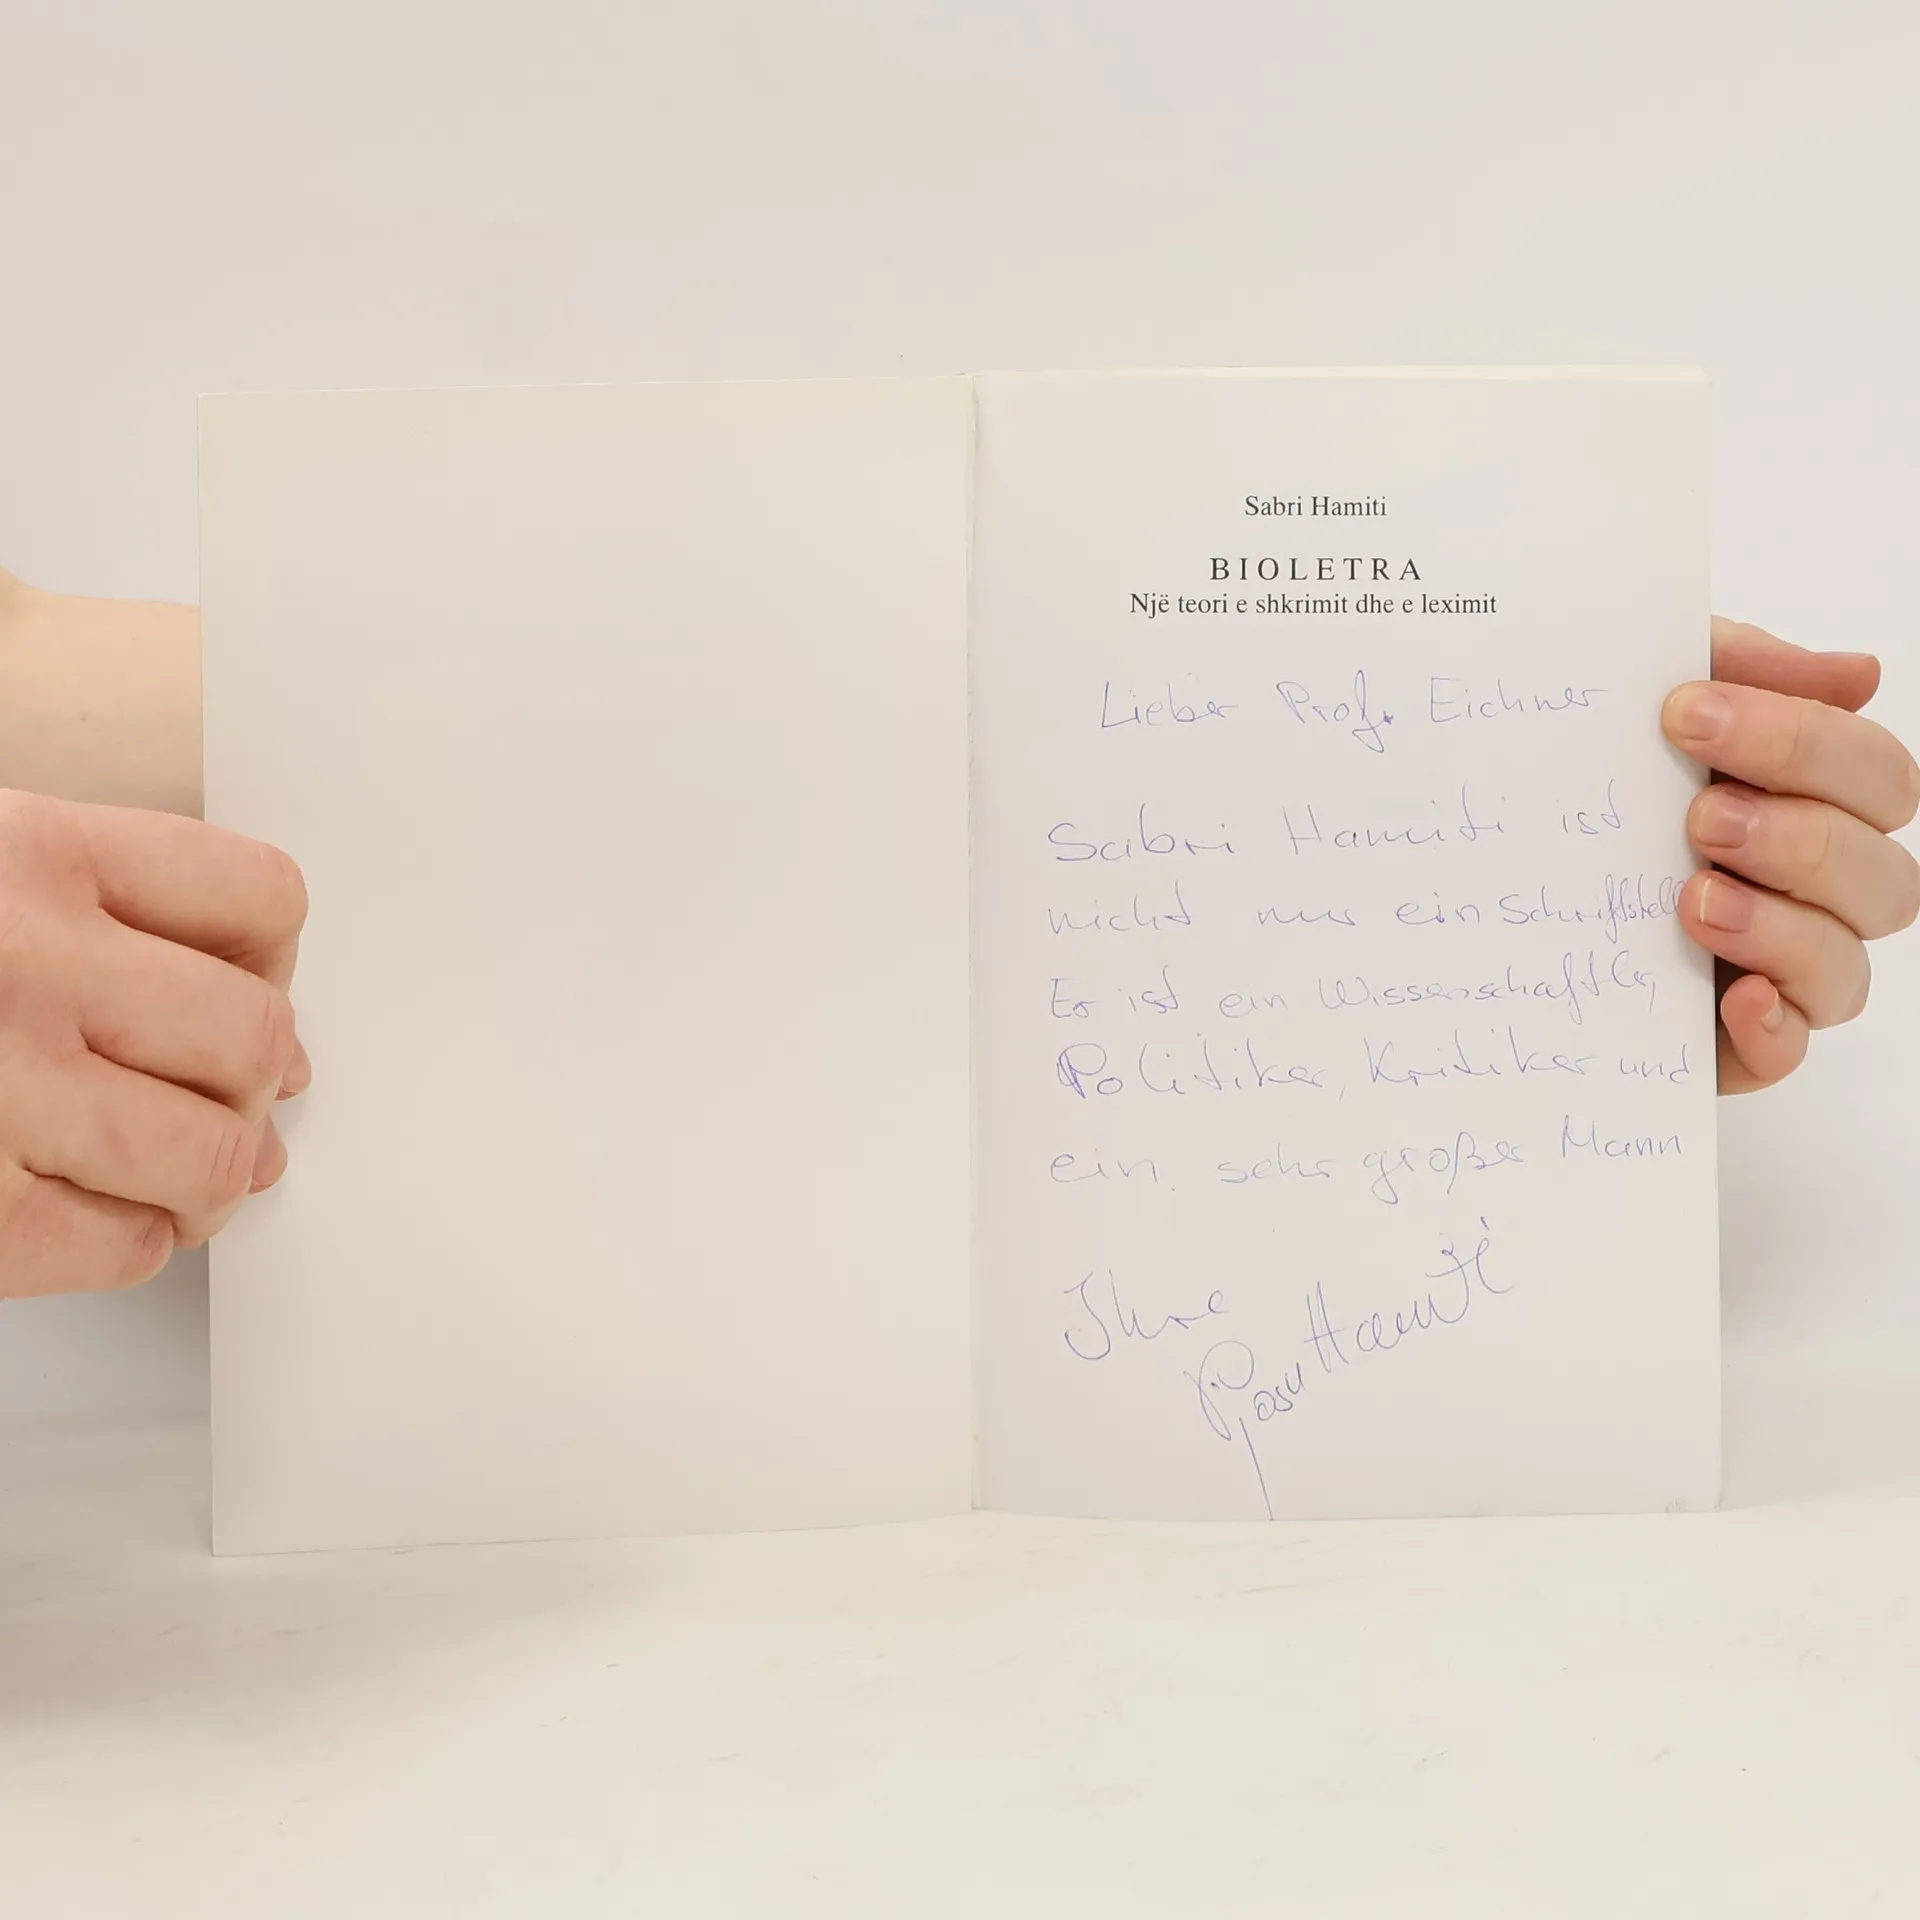 Sabri Hamiti
BIOLETRA
Një teori e shkrimit dhe e leximit
Lieber Prof. Eichner
Sabri Hamiti ist
nicht nur ein Schriftstell
Er ist ein Wissenschaftler,
Politiker, Kritiker und
ein sehr großer Mann
Ihre
Hamiti